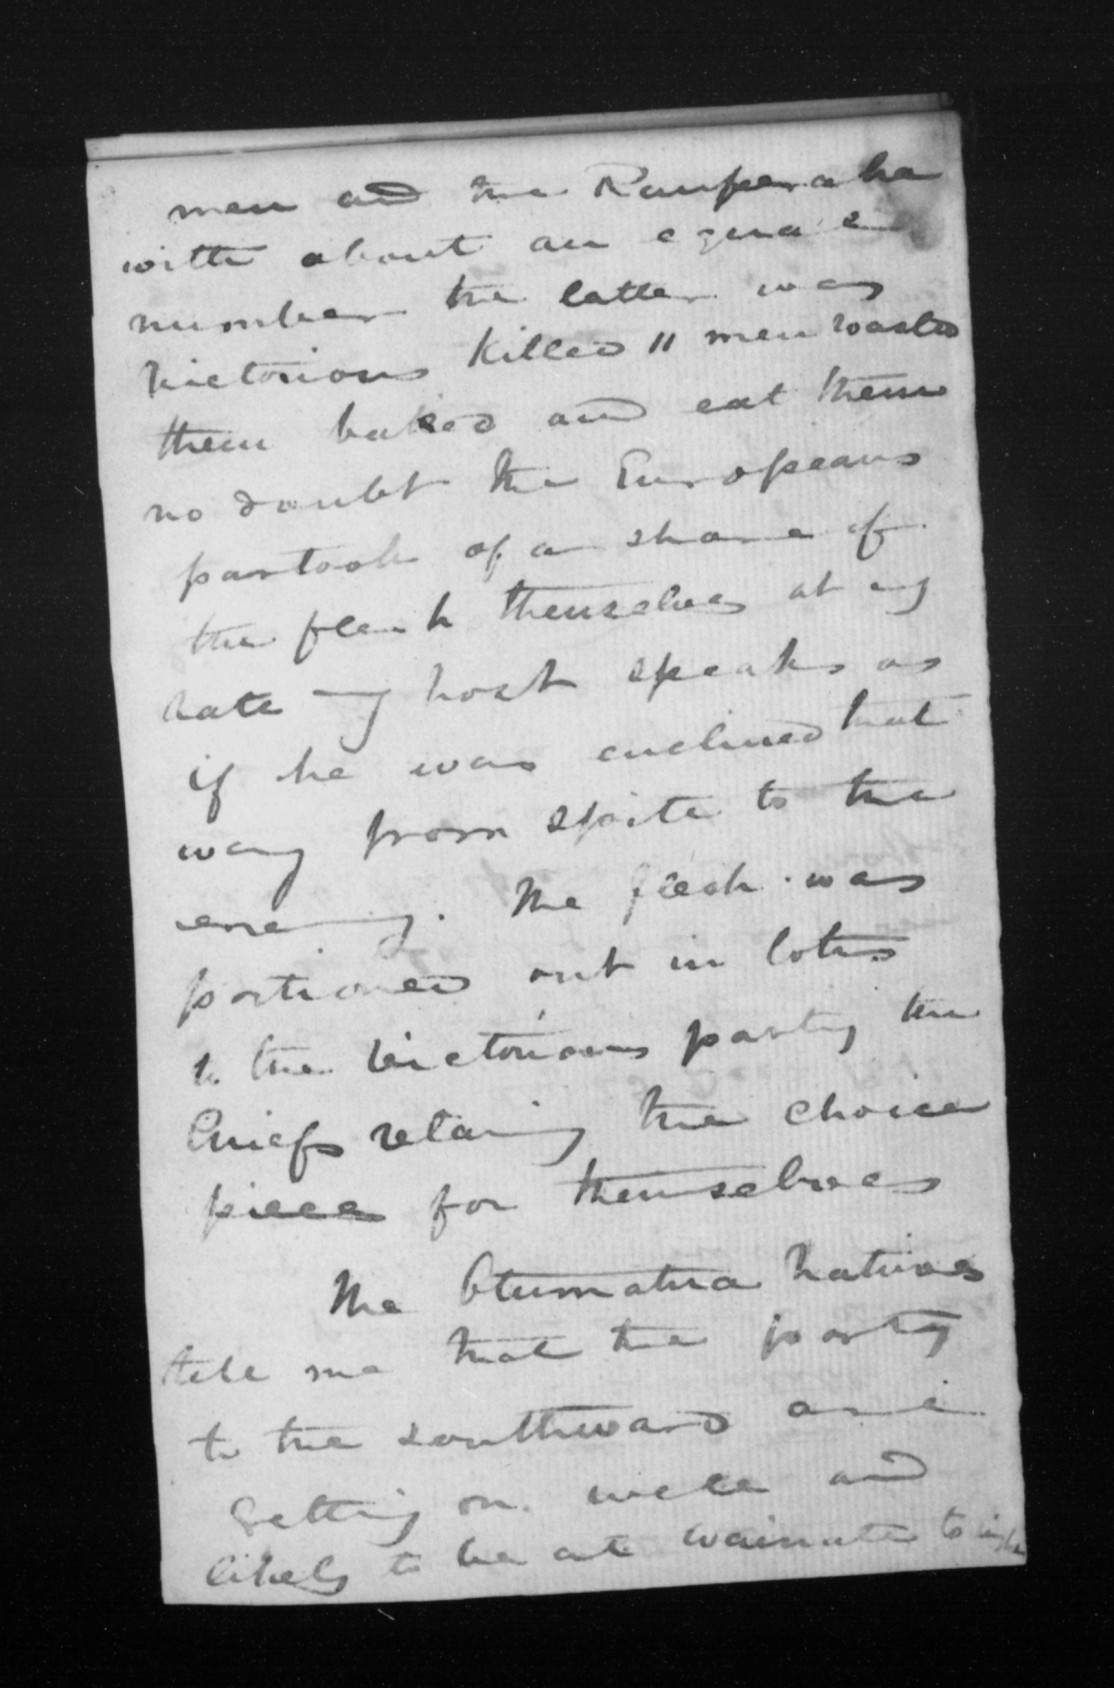 men and the Rauperaha
with about an equal
number the latter was
victorious killed 11 men roasted
them baked and eat them
no doubt the Europeans
partook of a share of
the flesh themselves at any
rate my host speaks as
if he was enclined that
way from spite to the
enemy. The flesh was
portioned out in lots
to the victorious party the
Chiefs retaing the choice
piece for themselves
The Otumatua Natives
tell me that the party
to the southward are
getting on well and
likely to be at Waimate to night